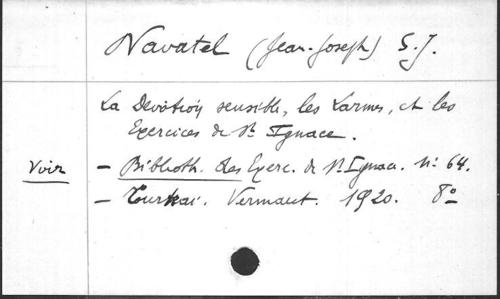 Navatel (Jean-Joseph) S.J.
La Dévotion sensible, les Larmes, et les
Exercices de St Ignace.
Voir — Biblioth. des Exerc. de St Ignace. No 64.
— Tournai. Vermaut. 1920. 8o